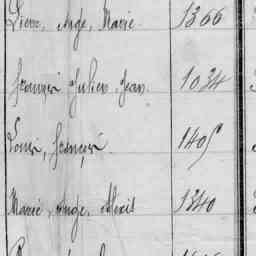 Pierre, Ange, Marie. 1366
François Julien Jean. 1034
Louis, François. 1405
Marie, Ange, Alexis 1340